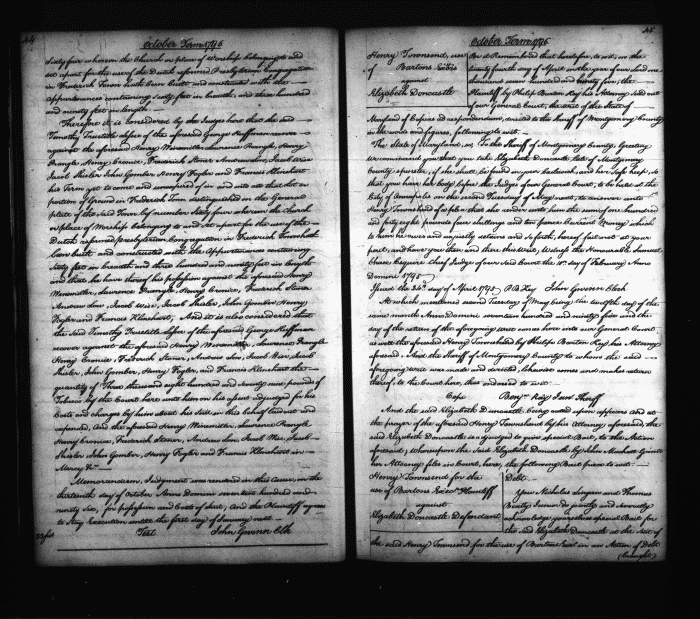 44
October Term 1796
Sixty four whereon the Church or place of Worship belonging to and
set apart for the use of the Dutch reformed Presbyterian Congregation
in Frederick Town hath been built and constructed with the
appurtenances containing Sixty feet in breadth, and three hundred
and ninety feet in length.
Therefore it is considered by the Judges here that the said
Timothy Trueltitle lessee of the aforesaid George Hoffman recover
against the aforesaid Henry Winemiller, Lawrence Prangle, Henry
Prangle Henry Cronise, Frederick Stoner, Andrew Low, Jacob Wise
Jacob Shisler John Gomber Henry Fogler and Francis Kleinhart
his Term yet to come and unexpired of in and into all that lot or
portion of Ground in Frederick Town distinguished in the General
platt of the said Town by number Sixty four whereon the Church
or place of Worship belonging to and set apart for the use of the
Dutch reformed Presbyterian Congregation in Frederick Town hath
been built and constructed with the Appurtenances containing
Sixty feet in breadth and three hundred and ninety feet in length
and that he have thereof his possession against the aforesaid Henry
Winemiller, Lawrence Prangle, Henry Cronise, Frederick Stoner
Andrew Low, Jacob Wise, Jacob Shisler, John Gomber Henry
Fogler and Francis Kleinhart; And it is also considered that
the said Timothy Trueltitle lessee of the aforesaid George Hoffman
recover against the aforesaid Henry Winemiller, Lawrence Prangle
Henry Cronise, Frederick Stoner, Andrew Low, Jacob Wise, Jacob
Shisler, John Gomber, Henry Fogler, and Francis Kleinhart the
quantity of Three thousand eight hundred and seventy nine pounds of
Tobacco by the Court here unto him on his assent adjudged for his
Costs and charges by him about his Suit in this behalf laid out and
expended, And the aforesaid Henry Winemiller, Lawrence Prangle
Henry Cronise, Frederick Stoner, Andrew Low, Jacob Wise, Jacob
Shisler, John Gomber, Henry Fogler and Francis Kleinhart in
Mercy &c.
Memorandum, Judgment was rendered in this Cause, on the
thirteenth day of October Anno Domini seventeen hundred and
ninety six, for possession and Costs of Suit, And the Plaintiff agrees
to Stay Execution untill the first day of January next
Test John Gwinn Clk
45
October Term 1796
Henry Townsend, use
of Bartons Exetrs
against
Elizabeth Doncastle
Be it Remembered that heretofore, to wit, on the
twenty fourth day of April in the year of our Lord one
thousand seven hundred and ninety five, the
Plaintiff by Philip Barton Key his Attorney sued out
of our General Court, the writ of the State of
Maryland of Capias ad respondendum, directed to the Sheriff of Montgomery County
in the words and figures, following to wit.
The State of Maryland, ss, To the Sheriff of Montgomery County, Greeting
we command you that you take Elizabeth Doncastle late of Montgomery
County spinster, if she shall be found in your bailiwick, and her safe keep, so
that you have her body before the Judges of our General Court, to be held at the
City of Annapolis on the second Tuesday of May next, to answer unto
Henry Townshend of a plea that she render unto him the sum of one hundred
and forty eight pounds four shillings and ten pence Current Money which
to him she owes and unjustly detains and so forth, hereof fail not at your
peril, and have you then and there this Writ, Witness the Honourable Samuel
Chase Esquire Chief Judge of our said Court the day of February Anno
Domini 1795
Issued the 24th day of April 1795 P B Key John Gwinn Clk
At which mentioned second Tuesday of May being the twelfth day of the
same month Anno Domini seventeen hundred and ninety five and the
day of the return of the aforegoing writ comes here into our General Court
as well the aforesaid Henry Townshend by Philip Barton Key his Attorney
aforesaid. And the Sheriff of Montgomery County to whom the said
aforegoing writ was made and directed, likewise comes and makes return
thereof, to the Court here, thus endorsed to wit.
Cepi Sheriff
And the said Elizabeth Doncastle being called upon appears And at
the prayer of the aforesaid Henry Townshend by his Attorney aforesaid, the
said Elizabeth Doncastle is adjudged to give special Bail, to the Action
aforesaid, whereupon the said Elizabeth Doncastle by John Gantt
her Attorney files in Court, here, the following Bail piece to wit:
Henry Townsend for the
use of Bartons Exetrs Plaintiff
against
Elizabeth Doncastle Defendant
Debt.
You Nicholas and Thomas
Beatty do jointly and severally
acknowledge yourselves special Bail for
the said Elizabeth Doncastle at the Suit of
the said Henry Townsend for the use of Bartons Exetrs in an Action of Debt
(brought)